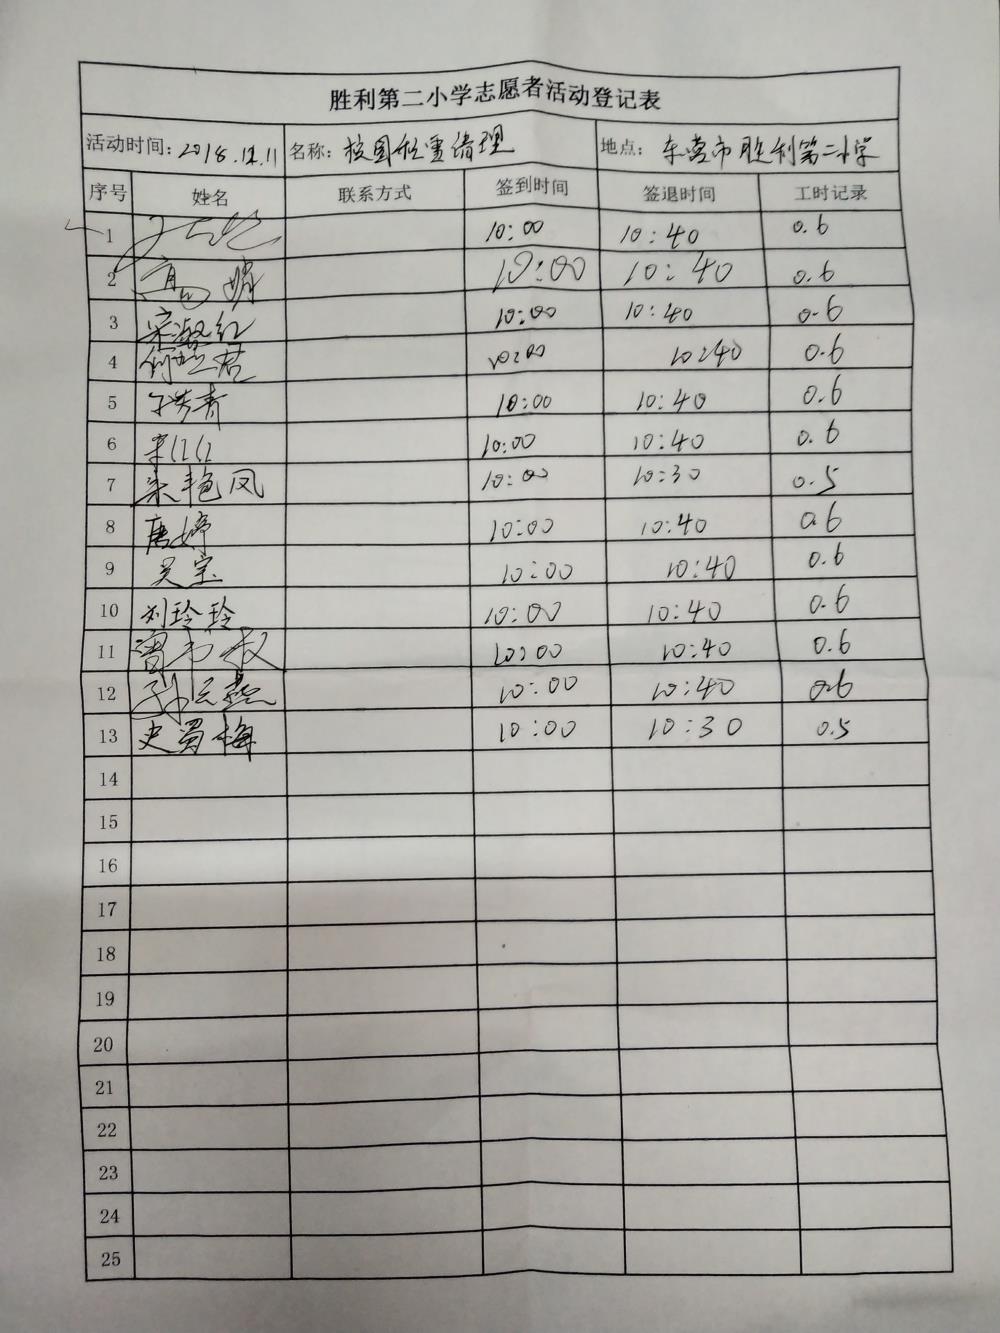 胜利第二小学志愿者活动登记表
活动时间：2018.12.11 名称：校园积雪清理 地点：东营市胜利第二小学
序号 姓名 联系方式 签到时间 签退时间 工时记录
1 10:00 10:40 0.6
2 高娟 10:00 10:40 0.6
3 宋淑红 10:00 10:40 0.6
4 10:00 10:40 0.6
5 于秀青 10:00 10:40 0.6
6 10:00 10:40 0.6
7 朱艳凤 10:00 10:30 0.5
8 唐婷 10:00 10:40 0.6
9 吴宝 10:00 10:40 0.6
10 刘玲玲 10:00 10:40 0.6
11 10:00 10:40 0.6
12 孙云燕 10:00 10:40 0.6
13 史蜀梅 10:00 10:30 0.5
14
15
16
17
18
19
20
21
22
23
24
25